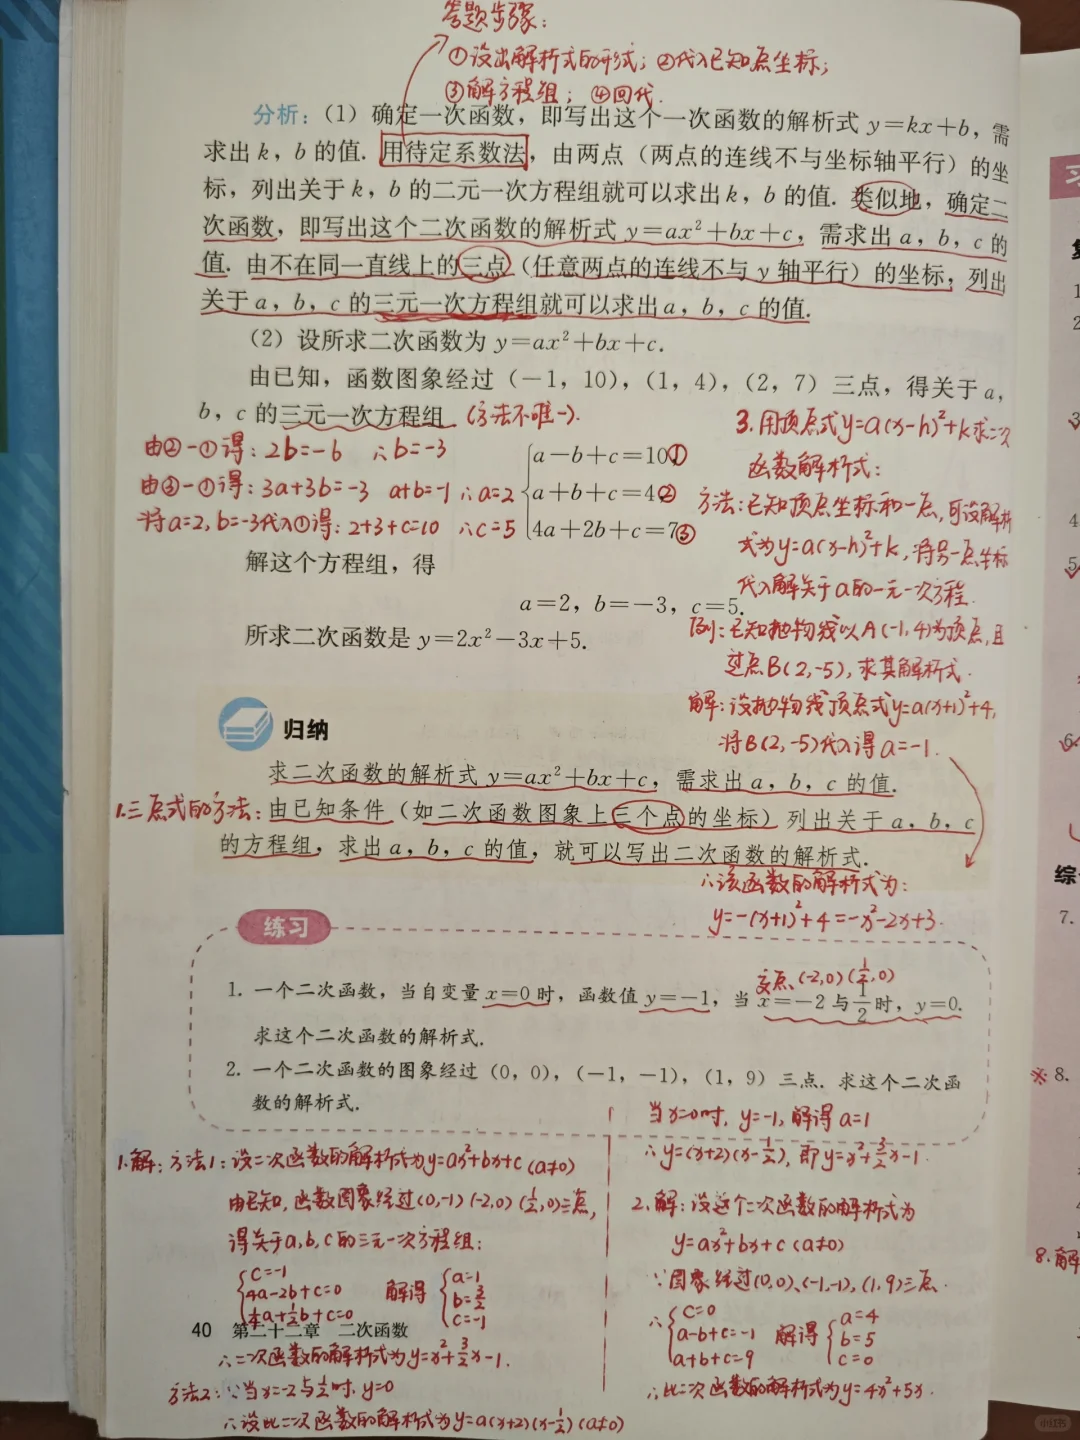 答题步骤:
①设出解析式的形式; ②代入已知点坐标;
③解方程组; ④回代.
分析:(1) 确定一次函数,即写出这个一次函数的解析式 y=kx+b,需
求出 k,b 的值. 用待定系数法,由两点(两点的连线不与坐标轴平行)的坐
标,列出关于 k,b 的二元一次方程组就可以求出 k,b 的值. 类似地,确定二
次函数,即写出这个二次函数的解析式 y=ax²+bx+c,需求出 a,b,c 的
值. 由不在同一直线上的三点(任意两点的连线不与 y 轴平行)的坐标,列出
关于 a,b,c 的三元一次方程组就可以求出 a,b,c 的值.
(2) 设所求二次函数为 y=ax²+bx+c.
由已知,函数图象经过(-1,10),(1,4),(2,7)三点,得关于 a,
b,c 的三元一次方程组 (方法不唯一).
由②-①得: 2b=-6 ∴b=-3
a-b+c=10, ①
由③-①得: 3a+3b=-3 a+b=-1 ∴a=2
a+b+c=4, ②
将a=2, b=-3代入①得: 2+3+c=10 ∴c=5
4a+2b+c=7. ③
解这个方程组,得
a=2,b=-3,c=5.
所求二次函数是 y=2x²-3x+5.
3. 用顶点式y=a(x-h)²+k求二次
函数解析式:
方法:已知顶点坐标和一点,可设解析
式为y=a(x-h)²+k, 将另一点坐标
代入解关于a的一元一次方程.
例:已知抛物线以A(-1,4)为顶点,且
过点B(2,-5), 求其解析式.
解:设抛物线顶点式y=a(x+1)²+4,
将B(2,-5)代入得a=-1.
归纳
求二次函数的解析式 y=ax²+bx+c,需求出 a,b,c 的值.
1.三点式的方法: 由已知条件(如二次函数图象上三个点的坐标)列出关于 a,b,c
的方程组,求出 a,b,c 的值,就可以写出二次函数的解析式.
∴该函数的解析式为:
y=-(x+1)²+4=-x²-2x+3.
练习
交点(-2,0)(1/2,0)
1. 一个二次函数,当自变量 x=0 时,函数值 y=-1,当 x=-2 与 1/2 时,y=0.
求这个二次函数的解析式.
2. 一个二次函数的图象经过(0,0),(-1,-1),(1,9)三点. 求这个二次函
数的解析式.
1.解: 方法1: 设二次函数的解析式为y=ax²+bx+c (a≠0)
由已知, 函数图象经过(0,-1)(-2,0)(1/2,0)三点,
得关于a,b,c的三元一次方程组:
c=-1
4a-2b+c=0
1/4a+1/2b+c=0
解得
a=1
b=3/2
c=-1
40 第二十二章 二次函数
∴二次函数的解析式为y=x²+3/2x-1.
方法2: ∵当x=-2与1/2时, y=0
∴设此二次函数的解析式为y=a(x+2)(x-1/2) (a≠0)
当x=0时, y=-1, 解得a=1
∴y=(x+2)(x-1/2), 即y=x²+3/2x-1.
2. 解: 设这个二次函数的解析式为
y=ax²+bx+c (a≠0)
∵图象经过(0,0)、(-1,-1)、(1,9)三点.
∴
c=0
a-b+c=-1
a+b+c=9
解得
a=4
b=5
c=0
∴此二次函数的解析式为y=4x²+5x.
习
1
2
3
4
5
6.
综
7.
※8.
8.解
小红书